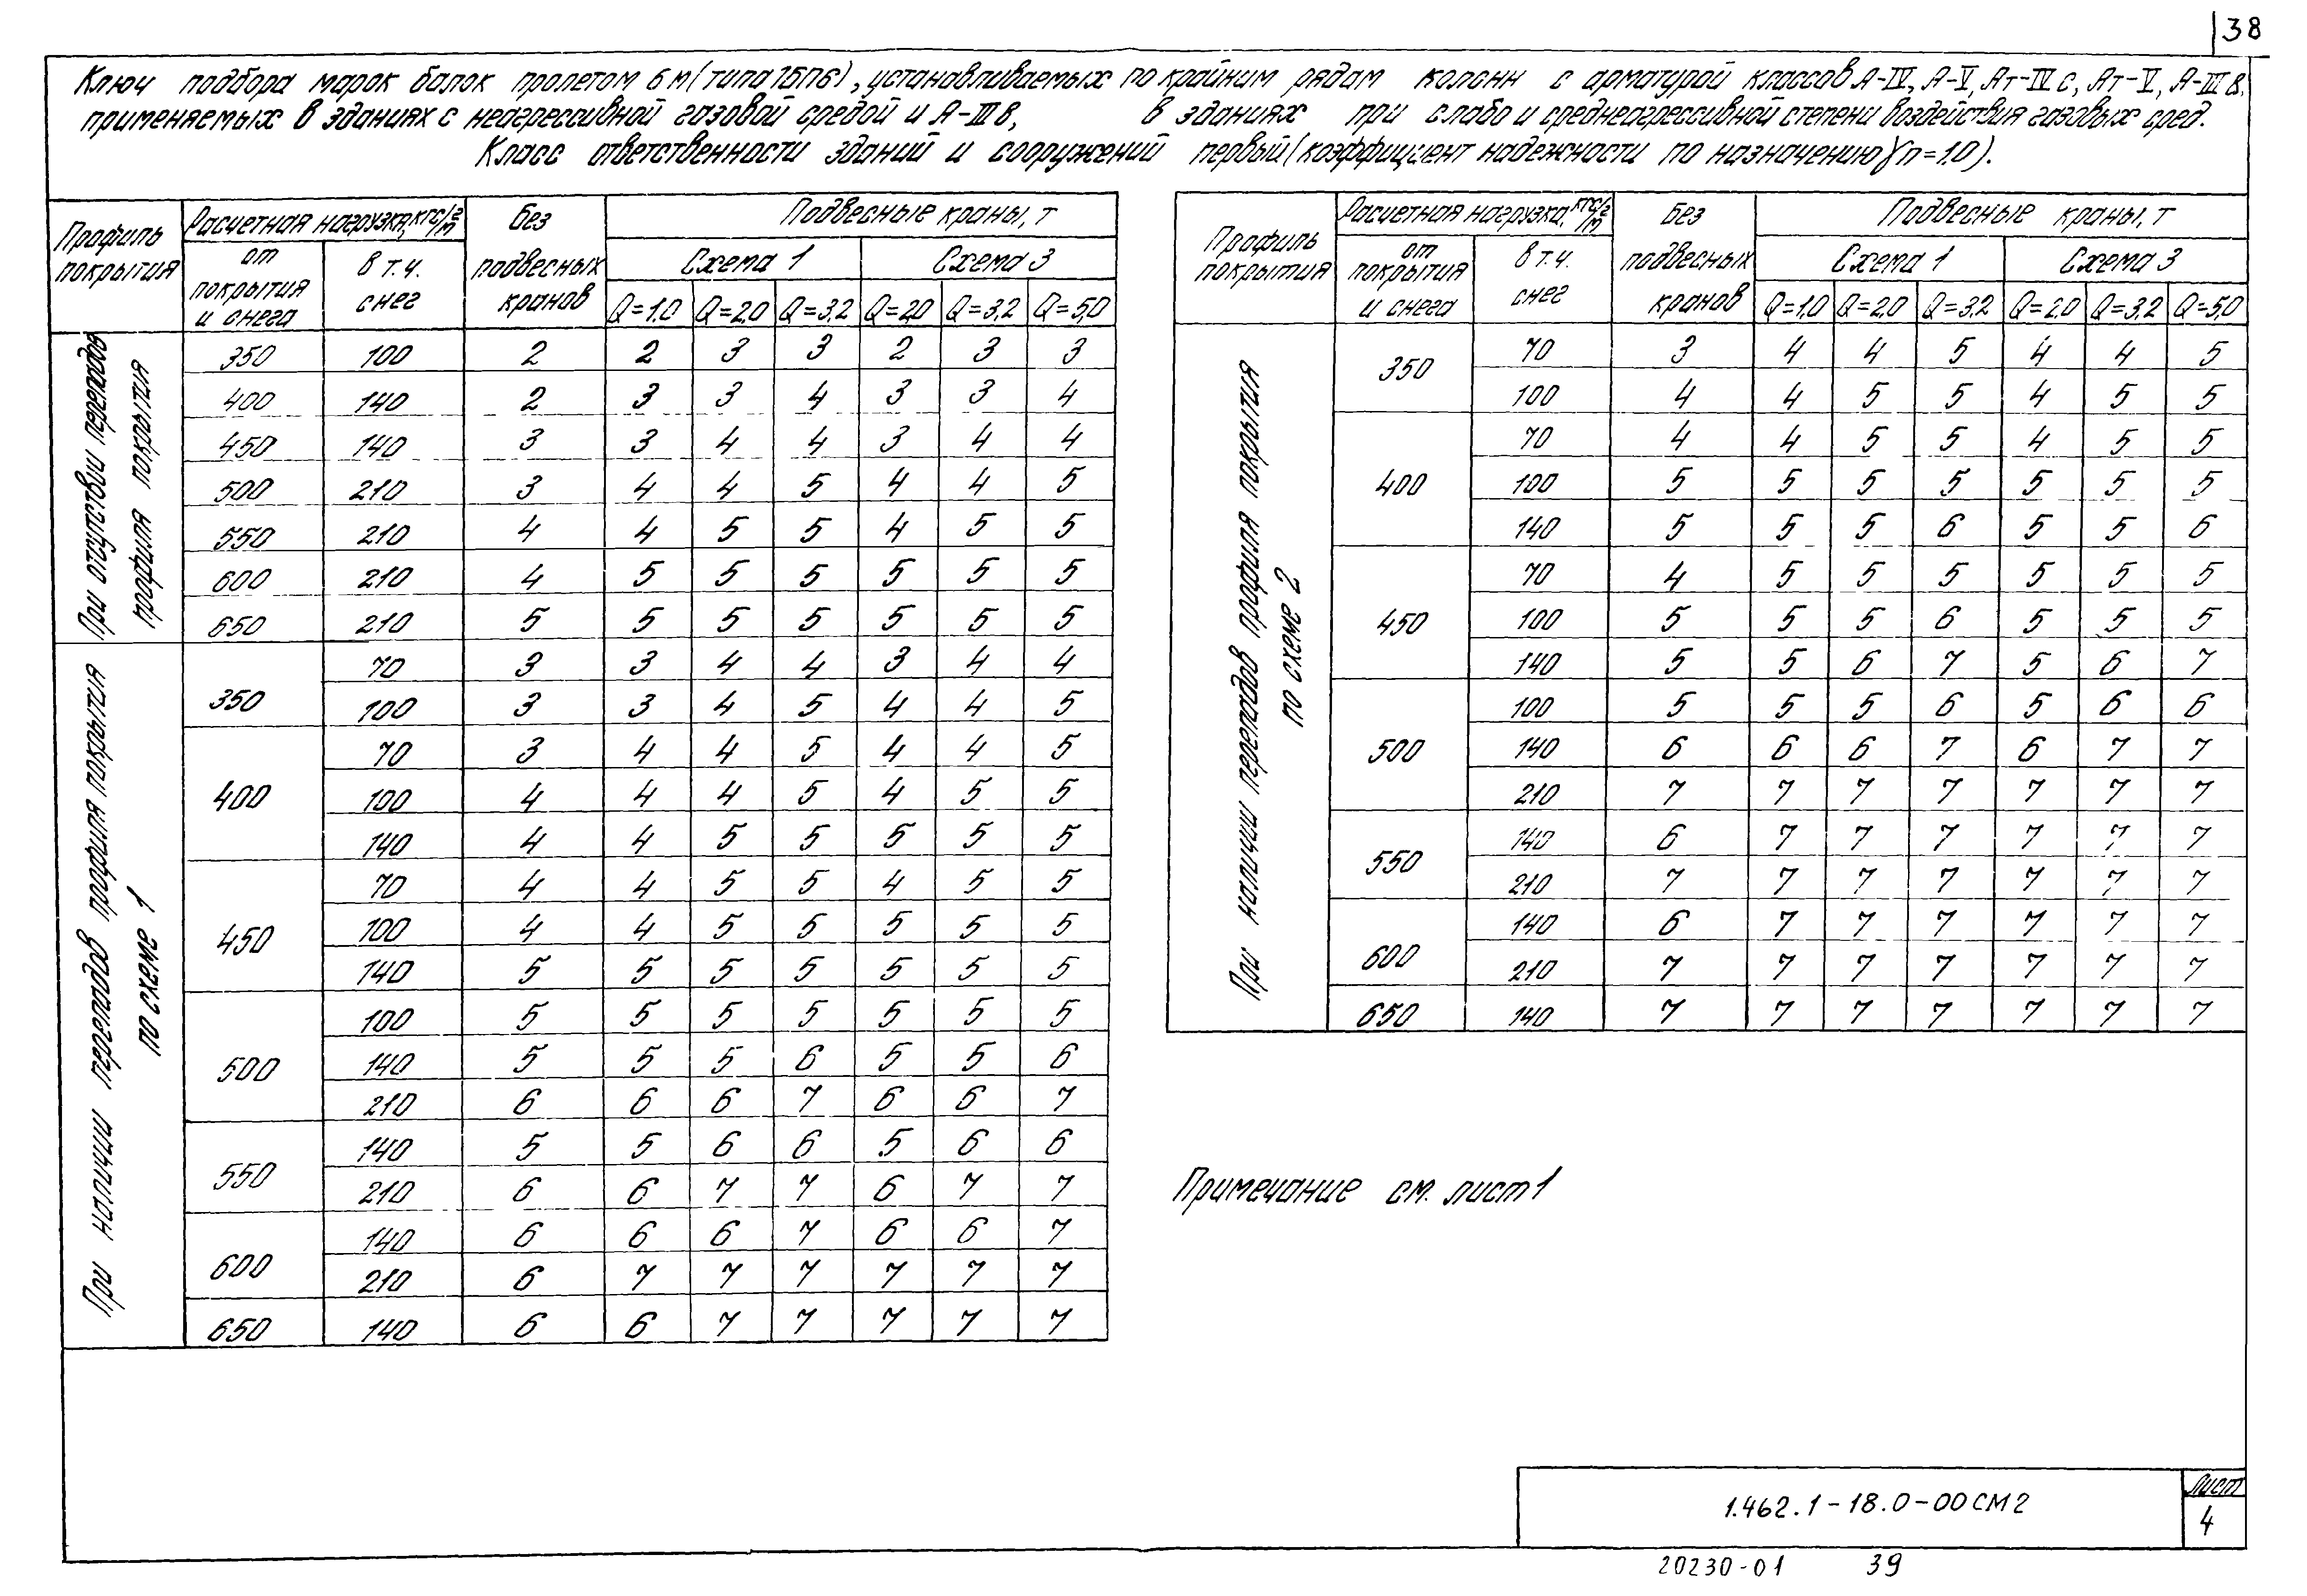 38
Ключ подбора марок балок пролетом 6 м (типа 1БП6), устанавливаемых по крайним рядам колонн с арматурой классов А-IV, А-V, Ат-IV С, Ат-V, А-III В,
применяемых в зданиях с неагрессивной газовой средой и А-III В, в зданиях при слабо и среднеагрессивной степени воздействия газовых сред.
Класс ответственности зданий и сооружений первый (коэффициент надежности по назначению γn=1.0).
Профиль покрытия | Расчетная нагрузка, кгс/м² | Без подвесных кранов | Подвесные краны, т
от покрытия и снега | в т.ч. снег | Схема 1 | Схема 3
Q=1,0 | Q=2,0 | Q=3,2 | Q=2,0 | Q=3,2 | Q=5,0
При отсутствии перепадов профиля покрытия
350 100 2 2 3 3 2 3 3
400 140 2 3 3 4 3 3 4
450 140 3 3 4 4 3 4 4
500 210 3 4 4 5 4 4 5
550 210 4 4 5 5 4 5 5
600 210 4 5 5 5 5 5 5
650 210 5 5 5 5 5 5 5
При наличии перепадов профиля покрытия по схеме 1
350 70 3 3 4 4 3 4 4
100 3 3 4 5 4 4 5
400 70 3 4 4 5 4 4 5
100 4 4 4 5 4 5 5
140 4 4 5 5 5 5 5
450 70 4 4 5 5 4 5 5
100 4 4 5 5 5 5 5
140 5 5 5 5 5 5 5
500 100 5 5 5 5 5 5 5
140 5 5 5 6 5 5 6
210 6 6 6 7 6 6 7
550 140 5 5 6 6 5 6 6
210 6 6 7 7 6 7 7
600 140 6 6 6 7 6 6 7
210 6 7 7 7 7 7 7
650 140 6 6 7 7 7 7 7
Профиль покрытия | Расчетная нагрузка, кгс/м² | Без подвесных кранов | Подвесные краны, т
от покрытия и снега | в т.ч. снег | Схема 1 | Схема 3
Q=1,0 | Q=2,0 | Q=3,2 | Q=2,0 | Q=3,2 | Q=5,0
При наличии перепадов профиля покрытия по схеме 2
350 70 3 4 4 5 4 4 5
100 4 4 5 5 4 5 5
400 70 4 4 5 5 4 5 5
100 5 5 5 5 5 5 5
140 5 5 5 6 5 5 6
450 70 4 5 5 5 5 5 5
100 5 5 5 6 5 5 5
140 5 5 6 7 5 6 7
500 100 5 5 5 6 5 6 6
140 6 6 6 7 6 7 7
210 7 7 7 7 7 7 7
550 140 6 7 7 7 7 7 7
210 7 7 7 7 7 7 7
600 140 6 7 7 7 7 7 7
210 7 7 7 7 7 7 7
650 140 7 7 7 7 7 7 7
Примечание см. лист 1
1.462.1-18.0-00СМ2
Лист
4
20230-01 39